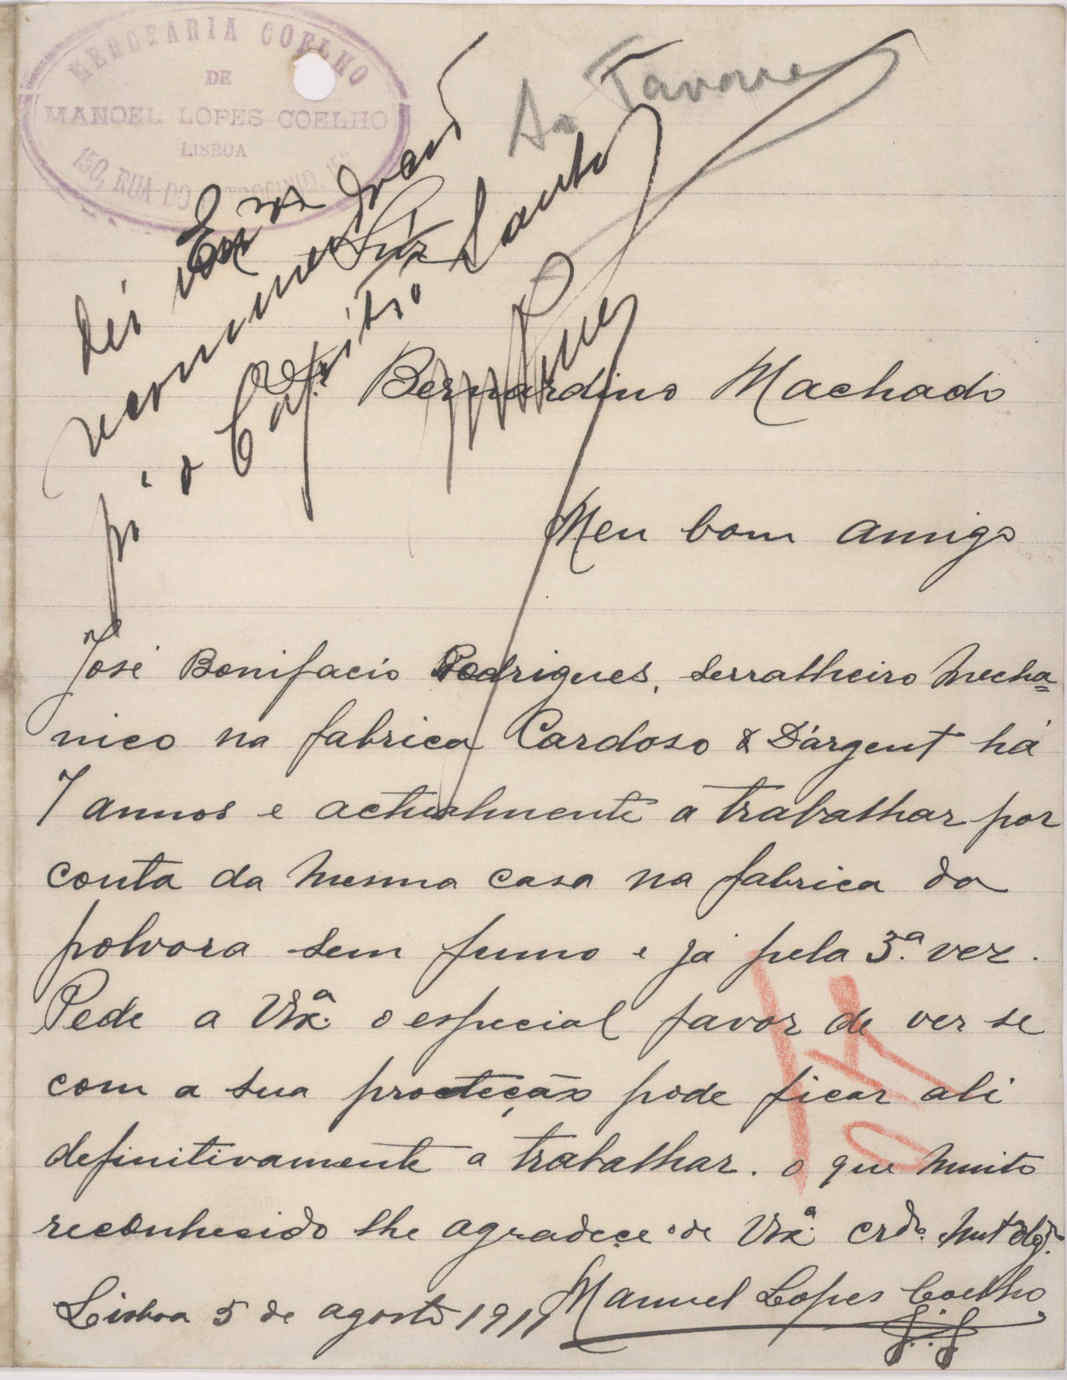 MERCEARIA COELHO
DE
MANOEL LOPES COELHO
LISBOA
150, RUA DO
Tavares
Dei
p.ª o Capitão
Santos
Bernardino Machado
Meu bom amigo
José Bonifacio Rodrigues, serralheiro mecha=
nico na fabrica Cardoso & D'argent há
7 annos e actualmente a trabalhar por
conta da mesma casa na fabrica da
polvora sem fumo e já pela 3.ª vez.
Pede a VEx.ª o especial favor de ver se
com a sua protecção pode ficar ali
definitivamente a trabalhar. o que muito
reconhecido lhe agradece o de VEx.ª crd.º mt.º obg.º
Manuel Lopes Coelho
Lisboa 5 de agosto 1911